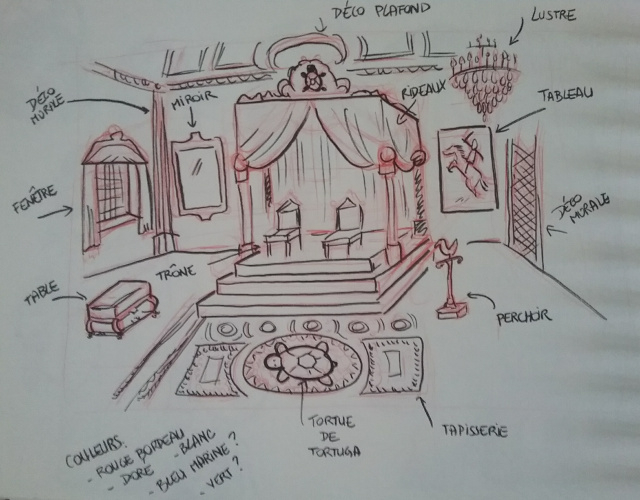 DÉCO PLAFOND
LUSTRE
DÉCO
MURALE
MIROIR
RIDEAUX
TABLEAU
FENÊTRE
DÉCO
MURALE
TRÔNE
TABLE
PERCHOIR
TORTUE
DE
TORTUGA
TAPISSERIE
COULEURS:
- ROUGE BORDEAU
- DORÉ - BLANC
- BLEU MARINE?
- VERT?